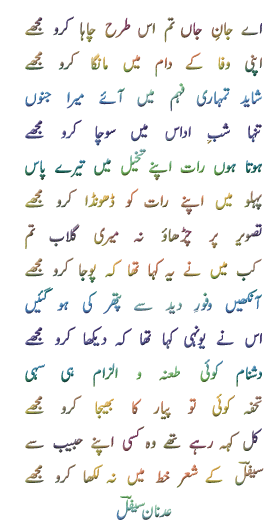 اے جانِ جاں تم اس طرح چاہا کرو مجھے
اپنی وفا کے دام میں مانگا کرو مجھے
شاید تمہاری فہم میں آئے میرا جنوں
تنہا شبِ اداس میں سوچا کرو مجھے
ہوتا ہوں رات اپنے تخیل میں تیرے پاس
پہلو میں اپنے رات کو ڈھونڈا کرو مجھے
تصویر پر چڑھاؤ نہ میری گلاب تم
کب میں نے یہ کہا تھا کہ پوجا کرو مجھے
آنکھیں وفورِ دید سے پتھر کی ہو گئیں
اس نے یونہی کہا تھا کہ دیکھا کرو مجھے
دشنام کوئی طعنہ و الزام ہی سہی
تحفہ کوئی تو پیار کا بھیجا کرو مجھے
کل کہہ رہے تھے وہ کسی اپنے حبیب سے
سیفلؔ کے شعر خط میں نہ لکھا کرو مجھے
عدنان سیفلؔ